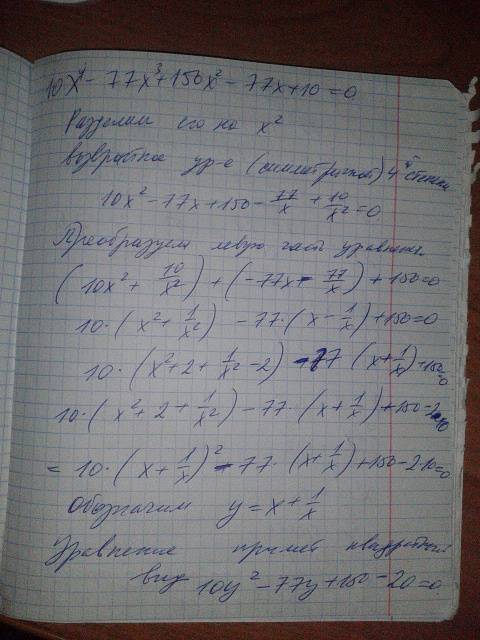 10x⁴ - 77x³ + 150x² - 77x + 10 = 0
Разделим его на x²
возвратное ур-е (симметричное) 4ой степени
10x² - 77x + 150 - 77/x + 10/x² = 0
Преобразуем левую часть уравнения.
(10x² + 10/x²) + (-77x - 77/x) + 150 = 0
10·(x² + 1/x²) - 77·(x - 1/x) + 150 = 0
10·(x² + 2 + 1/x² - 2) - 77(x + 1/x) + 150 = 0
10·(x² + 2 + 1/x²) - 77·(x + 1/x) + 150 - 2·10
= 10·(x + 1/x)² - 77·(x + 1/x) + 150 - 2·10 = 0
Обозначим y = x + 1/x
Уравнение примет квадратный
вид 10y² - 77y + 150 - 20 = 0